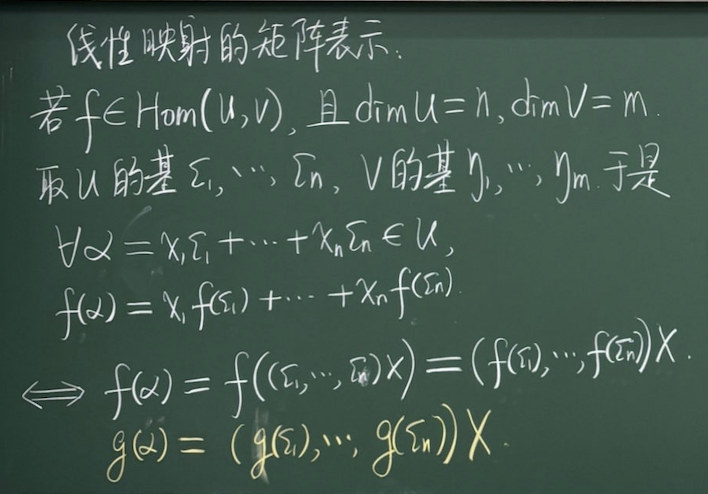 线性映射的矩阵表示:
若f∈Hom(U,V),且dimU=n,dimV=m.
取U的基ξ₁,…,ξn,V的基η₁,…,ηm.于是
∀α=x₁ξ₁+…+xnξn∈U,
f(α)=x₁f(ξ₁)+…+xnf(ξn).
⟺ f(α)=f((ξ₁,…,ξn)X)=(f(ξ₁),…,f(ξn))X.
g(α)=(g(ξ₁),…,g(ξn))X.